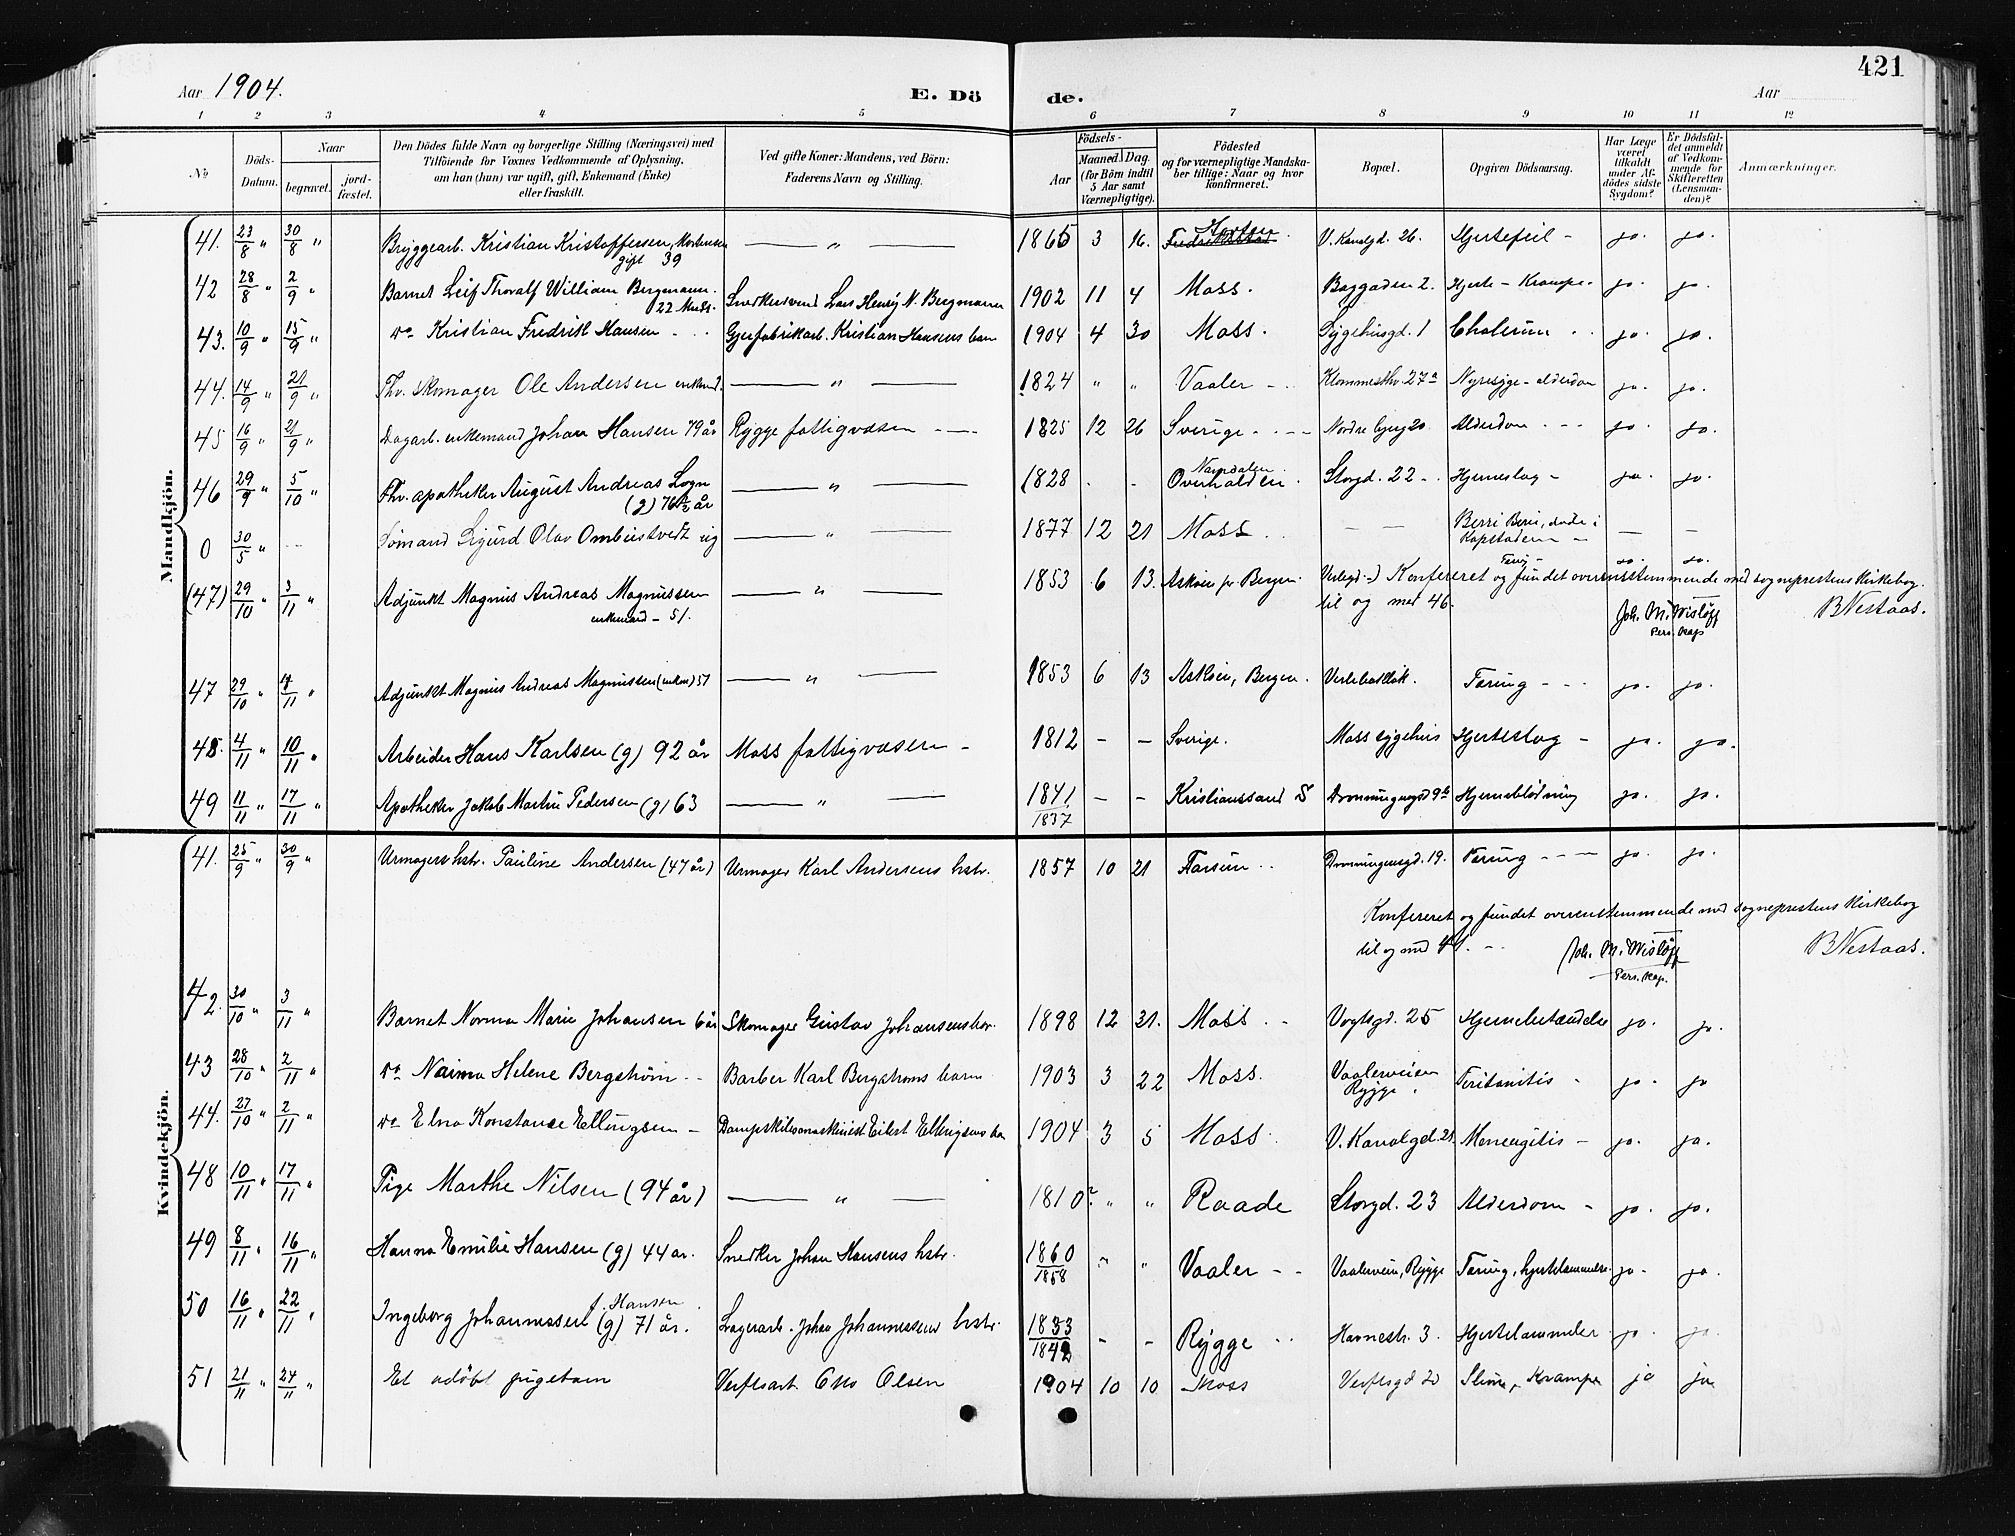 421
Aar 1904.
E. Döde.
Aar
1 2 3 4 5 6 7 8 9 10 11 12
No
Döds-Datum.
Naar
begravet.
jord-fæstet.
Den Dödes fulde Navn og borgerlige Stilling (Næringsvei) med
Tilföiende for Voxnes Vedkommende af Oplysning,
om han (hun) var ugift, gift, Enkemand (Enke)
eller fraskilt.
Ved gifte Koner: Mandens, ved Börn:
Faderens Navn og Stilling.
Födsels-
Aar
Maaned. Dag.
(for Börn indtil
5 Aar samt
Værnepligtige).
Födested
og for værnepligtige Mandska-
ber tillige: Naar og hvor
konfirmeret.
Bopæl.
Opgiven Dödsaarsag.
Har Læge
været
tilkaldt
under Af-
dödes sidste
Sygdom?
Er Dödsfal-
det anmeldt
af Vedkom-
mende for
Skifteretten
(Lensman-
den)?
Anmærkninger.
Mandkjön.
41. 23/8 " 30/8 " Bryggearb. Kristian Kristoffersen, Mortensen gift 39 — " — 1865 3 16. Fredrikstad V. Kanalgd. 26. Hjertefeil - ja. ja.
42 28/8 " 2/9 " Barnet Leif Thoralf William Bergmann. 22 Mndr. Snedkersvend Lars Henrij N. Bergmann 1902 11 4 Moss. Baggaden 2. Hjerte-Krampe. ja. ja.
43. 10/9 " 15/9 " do Kristian Fredrik Hansen Gjerfabrikarb. Kristian Hansens barn 1904 4 30 Moss. Sygehusgd. 1 Cholerine ja. ja.
44. 14/9 " 21/9 " Fhv. Skomager Ole Andersen enkmd. — " — 1824 " " Vaaler - 27a Nyresyge - alderdom ja. ja.
45 16/9 " 21/9 " Dagarb. enkemand Johan Hansen 79 år Rygge fattigvæsen - 1825 12 26 Sverige - Nordre 20 Alderdom ja. ja.
46 29/9 " 5/10 " Fhv. apotheker August Andreas Logn (g) 76 1/2 år — " — 1828 - - Namdalen Overhalden Storgd. 22 - Hjerneslag - ja. ja.
0 30/5 " — Sömand Sigurd Olav Ombustvedt ug — " — 1877 12 21 Moss — Berri Beri, døde i Kapstaden — —
(47) 29/10 " 3/11 " Adjunkt Magnus Andreas Magnussen enkemand - 51. — " — 1853 6 13. Askøen pr. Bergen. Tæring - ja. ja.
Konfereret og fundet overensstemmende med sogneprestens Kirkebog
til og med 46. Joh. M. Wisløff Pers. Kap. B Nestaas.
47 29/10 " 4/11 " Adjunkt Magnus Andreas Magnussen (enkm) 51 — " — 1853 6 13 Askøen, Bergen. Tæring - ja. ja.
48. 4/11 " 10/11 " Arbeider Hans Karlsen (g) 92 år Moss fattigvæsen - 1812 - - Sverige. Moss sygehus Hjerteslag - ja. ja.
49 11/11 " 17/11 " Apotheker Jakob Martin Pedersen (g) 63 — " — 1841/1837 - - Kristianssand S Dronningensgd 9b Hjerneblödning ja. ja.
Kvindekjön.
41. 25/9 " 30/9 " Urmagers hstr. Pauline Andersen (47 år) Urmager Karl Andersens hstr. 1857 10 21 Farsun Dronningensgd. 19. Tæring - ja. ja.
Konfereret og fundet overensstemmende med sogneprestens Kirkebog
til og med 41. Joh. M. Wisløff Pers. Kap. B Nestaas.
42. 30/10 " 3/11 " Barnet Norma Marie Johansen 6 år Skomager Gustav Johansens bar. 1898 12 31. Moss Vogtsgd. 25 Hjernebetændelse ja. ja.
43 28/10 " 2/11 " do Naima Helene Bergstrøm Barber Karl Bergstrøms barn 1903 3 22 Moss. Vaalerveien Rygge. Peritonitis - ja. ja
44. 27/10 " 2/11 " do Elna Konstance Ellingsen - Dampskibsmaskinist Eilert Ellingsens ba 1904 3 5 Moss. V. Kanalgd. 21 Menengitis - ja. ja.
48 10/11 " 17/11 " Pige Marthe Nilsen (94 år) — " — 1810? " " Raade Storgd. 23 Alderdom - ja. ja.
49 8/11 " 16/11 " Hanna Emilie Hansen (g) 44 år. Snedker Johan Hansens hstr. 1860/1858 " " Vaaler - Vaalerveien, Rygge Tæring, hjertelammelse. ja. ja.
50 16/11 " 22/11 " Ingeborg Johannessen f. Hansen (g) 71 år. Lagerarb. Johan Johannessens hstr. 1833/1842 - - Rygge Havnestr. 3. Hjertelammelse ja. ja.
51 21/11 " 24/11 " Et udöbt pigebarn Verftsarb. Otto Olsen 1904 10 10 Moss Verftsgd 20 Slim, Krampe ja ja